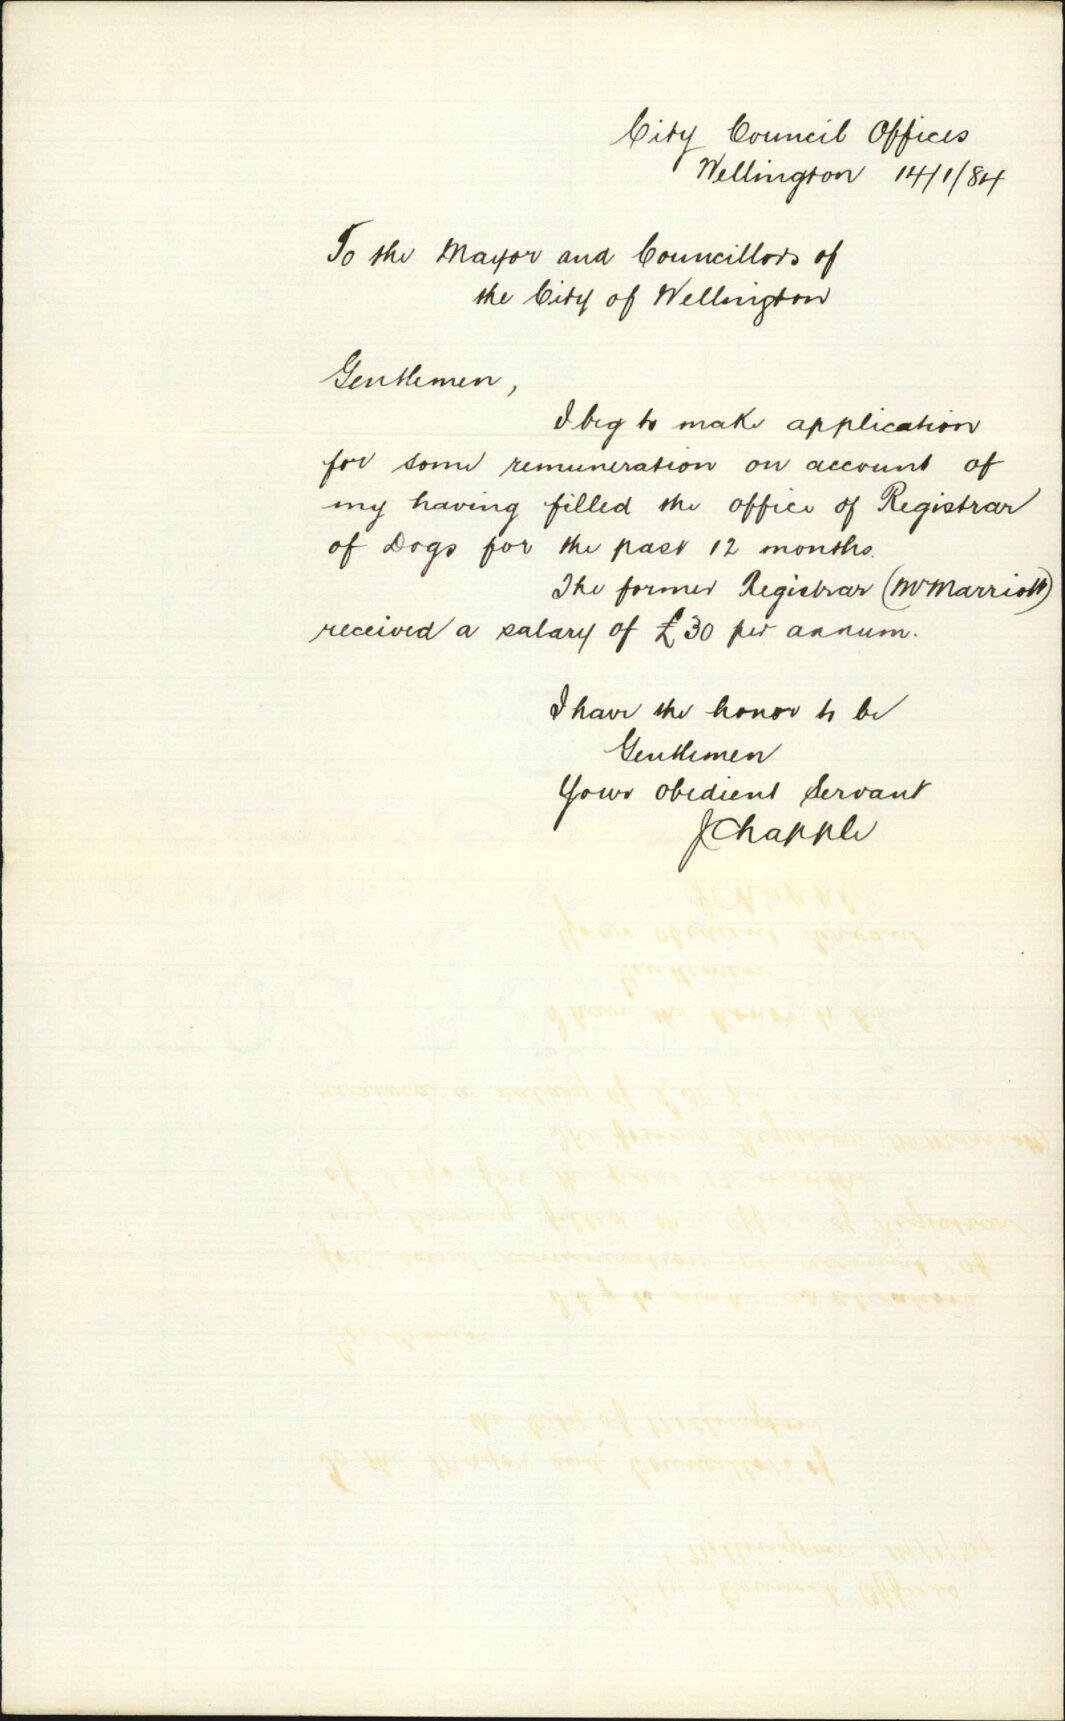 City Council Offices
Wellington 14/1/84
To the Mayor and Councillors of
the City of Wellington
Gentlemen,
I beg to make application
for some remuneration on account of
my having filled the office of Registrar
of Dogs for the past 12 months.
The former Registrar (Mr Marriott)
received a salary of £30 per annum.
I have the honor to be
Gentlemen
Your obedient Servant
J Chapple